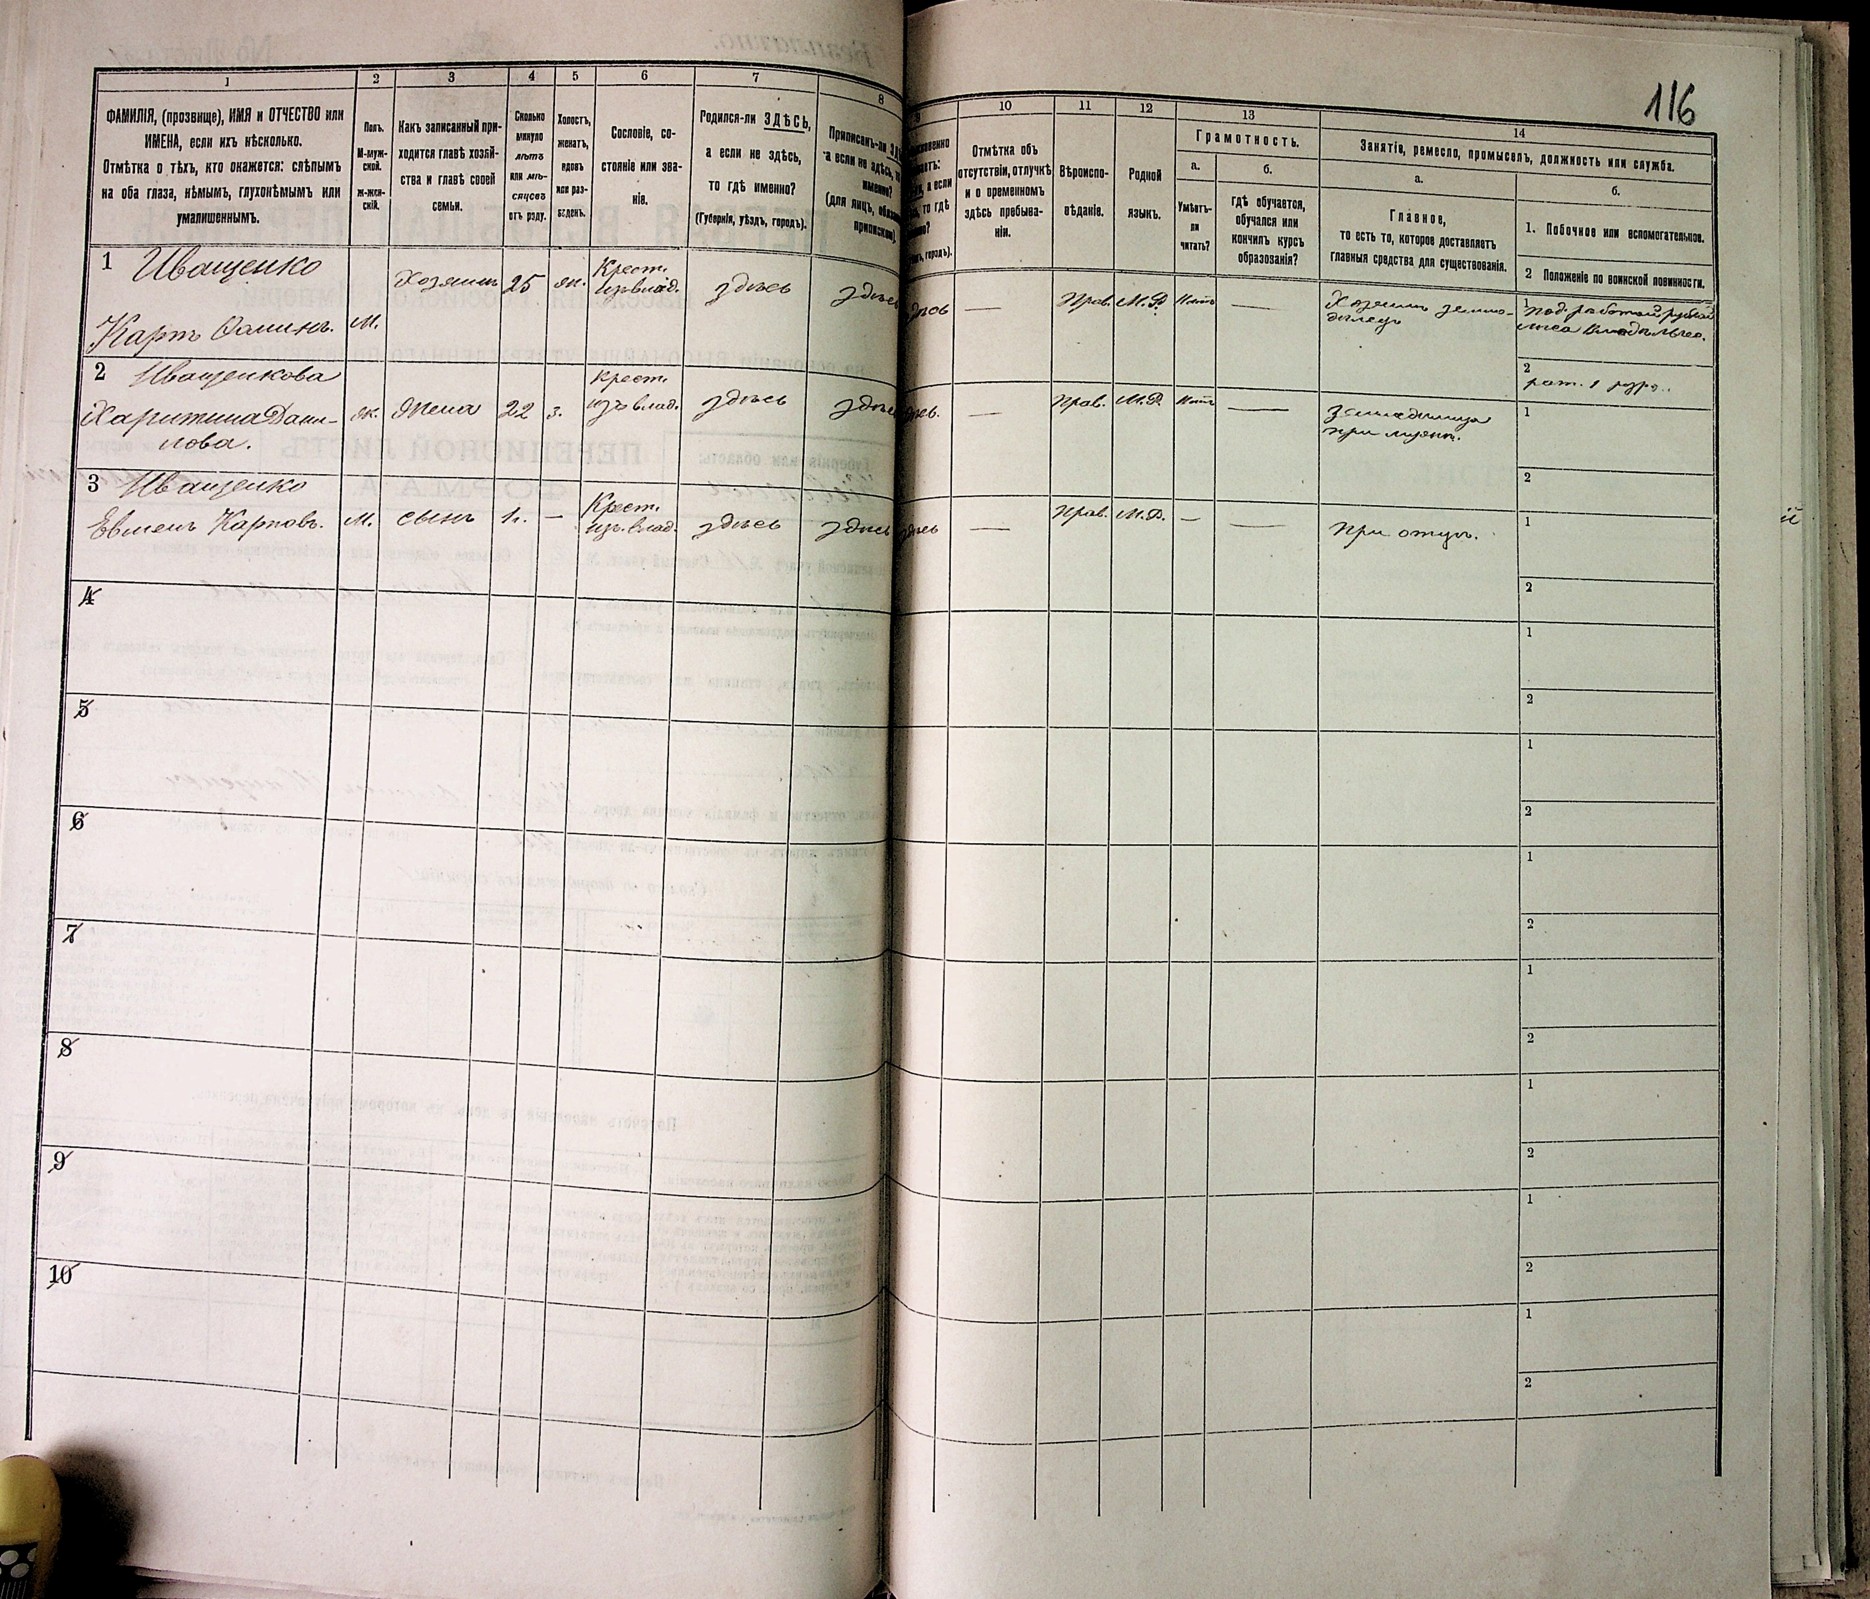 116
1
2
3
4
5
6
7
8
ФАМИЛІЯ, (прозвище), ИМЯ и ОТЧЕСТВО или
ИМЕНА, если ихъ нѣсколько.
Отмѣтка о тѣхъ, кто окажется: слѣпымъ
на оба глаза, нѣмымъ, глухонѣмымъ или
умалишеннымъ.
Полъ.
М-муж-
ской.
ж-жен-
скій.
Какъ записанный при-
ходится главѣ хозяй-
ства и главѣ своей
семьи.
Сколько
минуло
лѣтъ
или мѣ-
сяцевъ
отъ роду.
Холостъ,
женатъ,
вдовъ
или раз-
веденъ.
Сословіе, со-
стояніе или зва-
ніе.
Родился-ли ЗДѢСЬ,
а если не здѣсь,
то гдѣ именно?
(Губернія, уѣздъ, городъ).
Приписанъ-ли
а если не здѣсь,
именно?
(для лицъ,
10
11
12
13
14
Отмѣтка объ
отсутствіи, отлучкѣ
и о временномъ
здѣсь пребыва-
ніи.
Вѣроиспо-
вѣданіе.
Родной
языкъ.
Грамотность.
а.
Умѣетъ-
ли
читать?
б.
гдѣ обучается,
обучался или
кончилъ курсъ
образованія?
Занятіе, ремесло, промыселъ, должность или служба.
а.
Главное,
то есть то, которое доставляетъ
главныя средства для существованія.
б.
1. Побочное или вспомогательное.
2 Положеніе по воинской повинности.
1 Иващенко
Карпъ Ѳоминъ. М.
Хозяинъ 25 жн.
Крест.
изъ влад.
здѣсь
здѣсь
—
Прав. М.Р. Нѣтъ —
Хозяинъ земле-
дѣлецъ
1
2
2 Иващенкова
Харитина Дани-
лова.
ж. жена 22 з.
крест.
изъ влад.
здѣсь
—
Прав. М.Р. Нѣтъ —
при мужѣ.
1
2
3 Иващенко
Евменъ Карповъ. М. сынъ 1г. —
Крест.
изъ влад.
здѣсь здѣсь
—
Прав. М.Р. — —
при отцѣ.
1
2
4
1
2
5
1
2
6
1
2
7
1
2
8
1
2
9
1
2
10
1
2